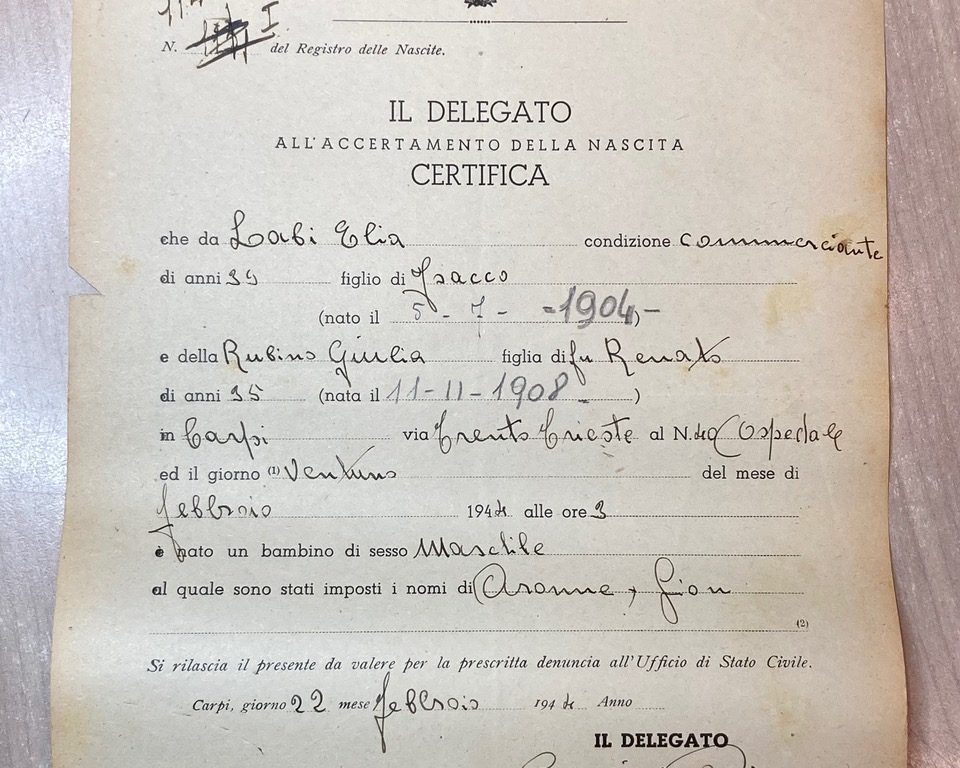 I
N. del Registro delle Nascite.
IL DELEGATO
ALL'ACCERTAMENTO DELLA NASCITA
CERTIFICA
che da Labi Elia condizione commerciante
di anni 39 figlio di Isacco
(nato il 5 - 7 - =1904)-
e della Rubino Giulia figlia di fu Renato
di anni 35 (nata il 11-11-1908 - )
in Carpi via Trento Trieste al N. 40 (Ospedale
ed il giorno (1) Ventuno del mese di
febbraio 1944 alle ore 3
è nato un bambino di sesso Maschile
al quale sono stati imposti i nomi di Aronne,
(2)
Si rilascia il presente da valere per la prescritta denuncia all'Ufficio di Stato Civile.
Carpi, giorno 22 mese febbraio 1944 Anno
IL DELEGATO